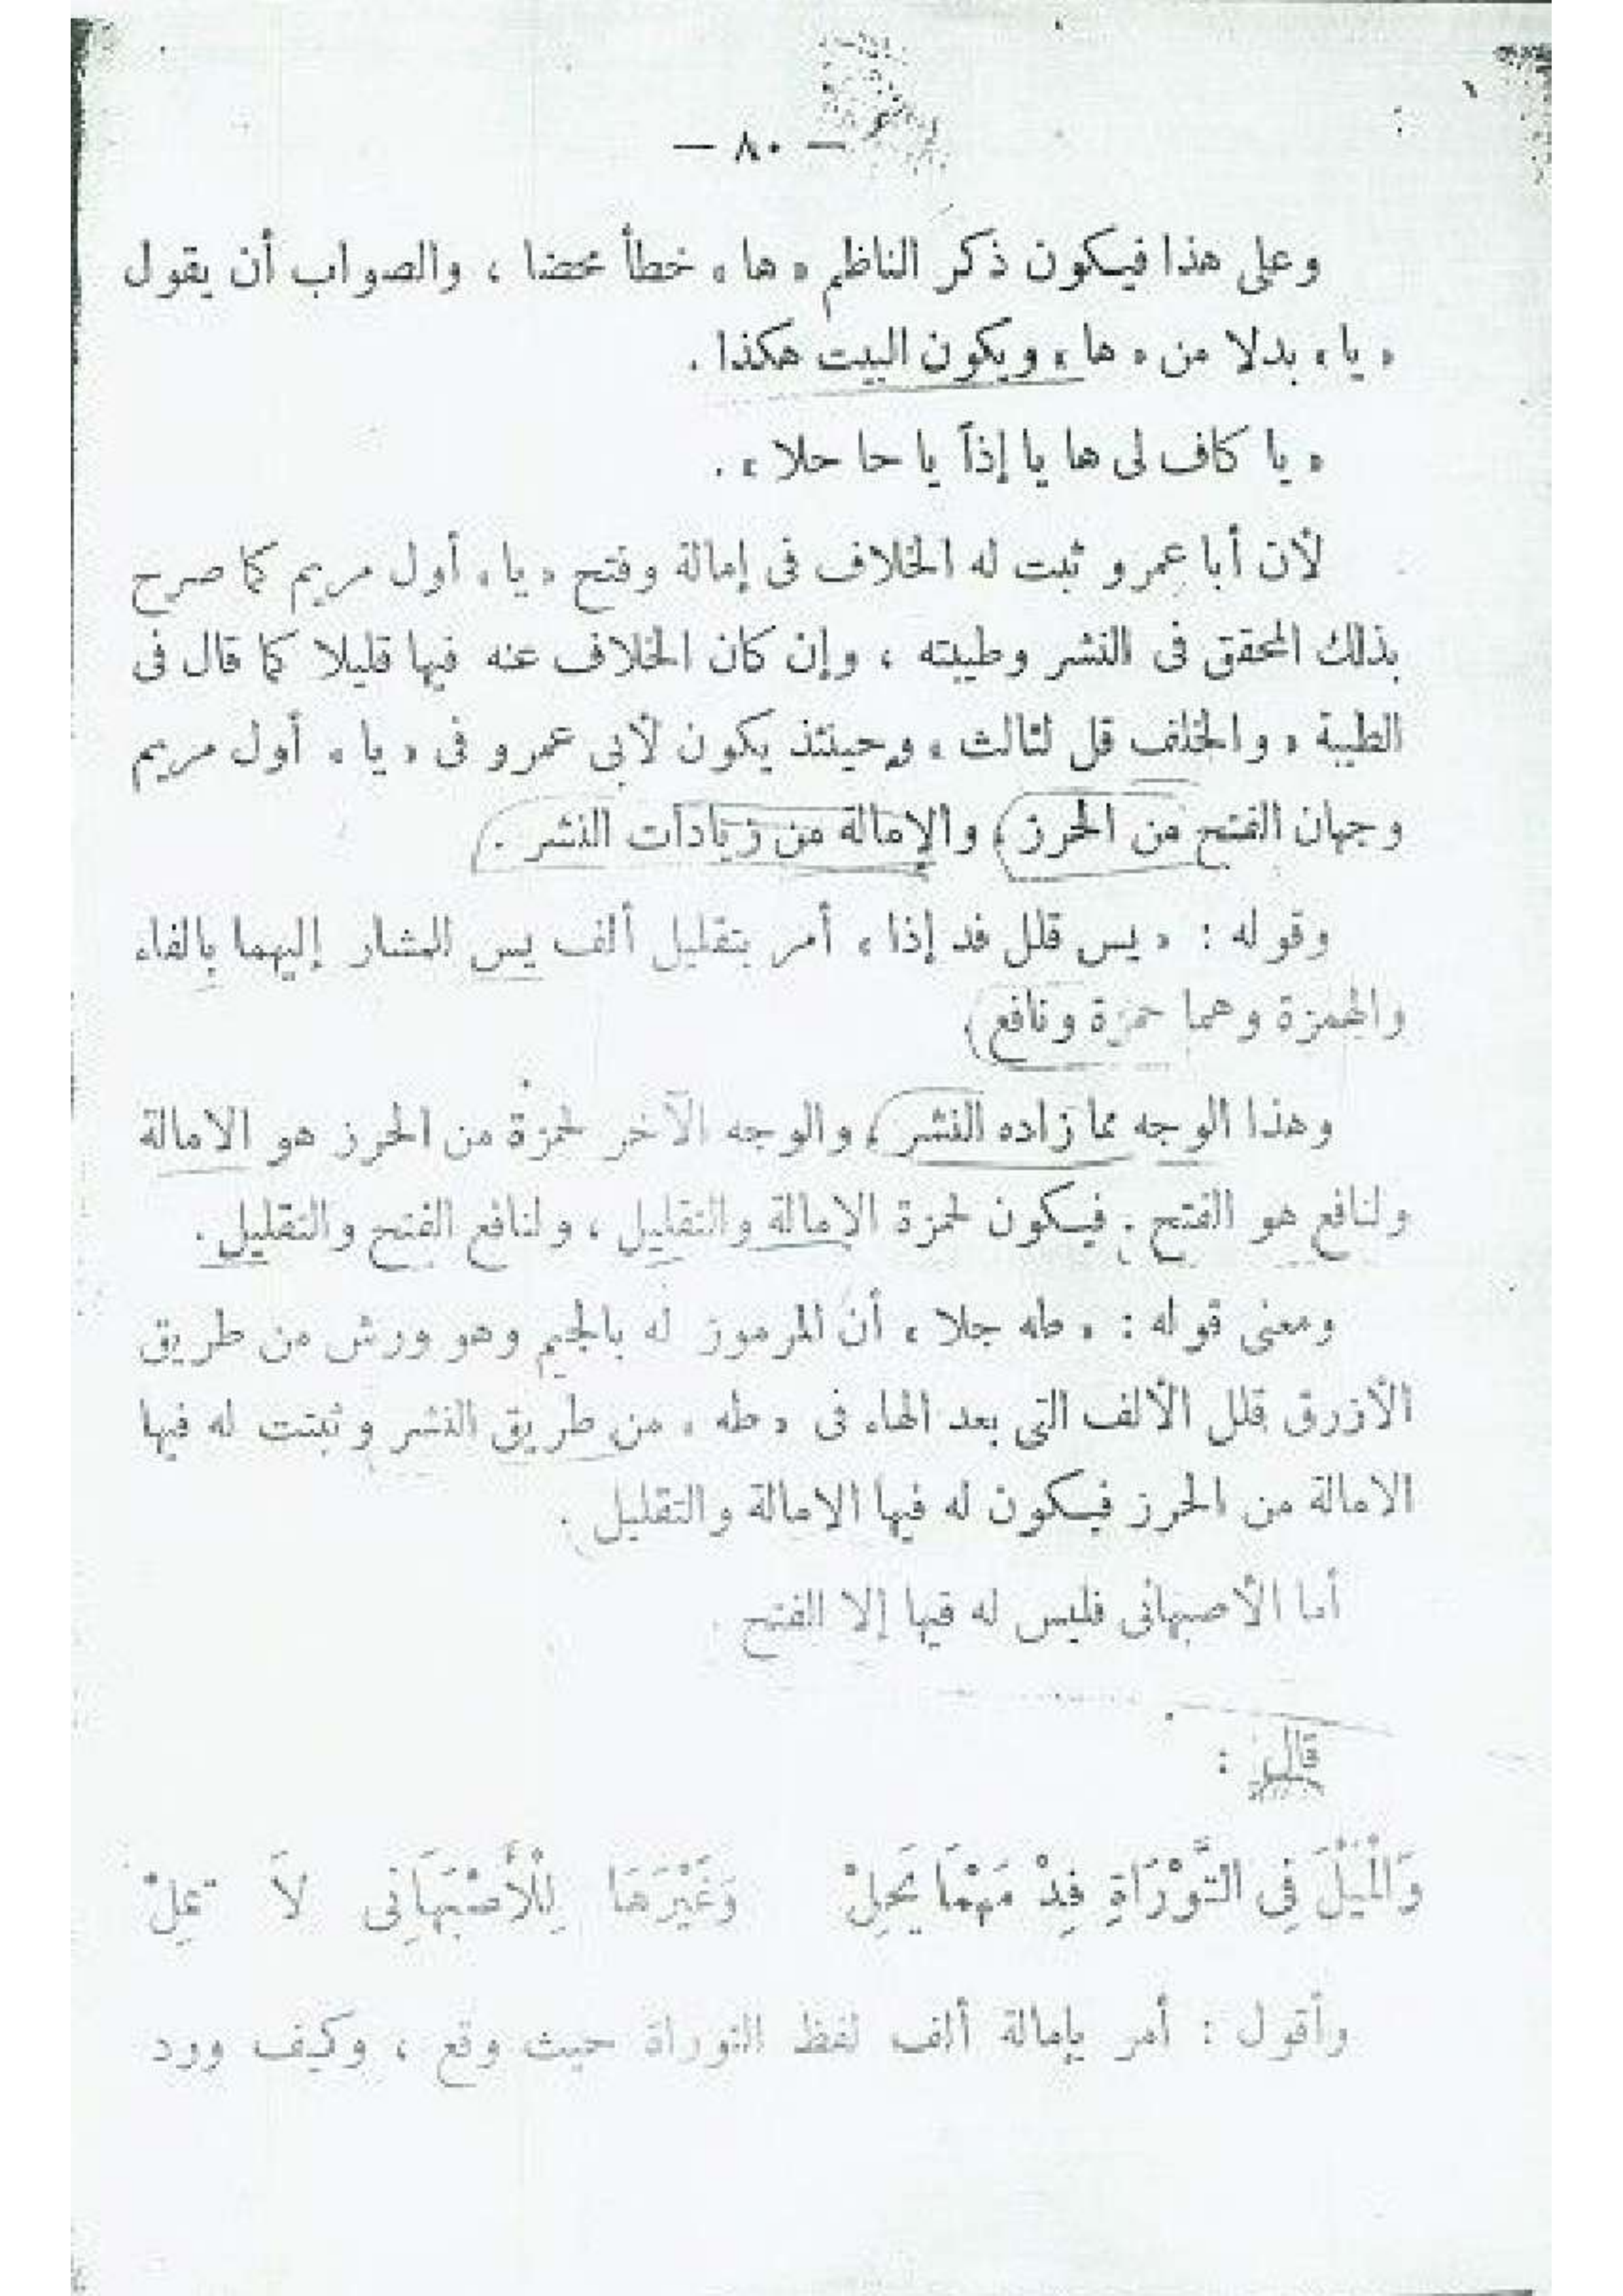 — ٨٠ —
وعلى هذا فيكون ذكر الناظم « ها » خطأ محضا ، والصواب أن يقول
« يا » بدلا من « ها » ويكون البيت هكذا .
« يا كاف لى ها يا إذاً يا حا حلا » .
لأن أبا عمرو ثبت له الخلاف فى إمالة وفتح « يا » أول مريم كما صرح
بذلك المحقق فى النشر وطيبته ، وإن كان الخلاف عنه فيها قليلا كما قال فى
الطيبة « والخلف قل لثالث » وحينئذ يكون لأبى عمرو فى « يا » أول مريم
وجهان الفتح من الحرز ، والإمالة من زيادات النشر .
وقوله : « يس قلل فد إذا » أمر بتقليل ألف يس للمشار إليهما بالفاء
والهمزة وهما حمزة ونافع .
وهذا الوجه مما زاده النشر ، والوجه الآخر لحمزة من الحرز هو الامالة
ولنافع هو الفتح . فيكون لحمزة الامالة والتقليل ، ولنافع الفتح والتقليل .
ومعنى قوله : « طه جلا » أن المرموز له بالجيم وهو ورش من طريق
الأزرق قلل الألف التى بعد الهاء فى « طه » من طريق النشر وثبتت له فيها
الامالة من الحرز فيكون له فيها الامالة والتقليل .
أما الأصبهانى فليس له فيها إلا الفتح .
قال :
وَالْمَيْلَ فِى التَّوْرَاةِ فِدْ مَهْمَا يَحِلْ وَغَيْرَهَا لِلْأَصْبَهَانِى لاَ تمِلْ
وأقول : أمر بإمالة ألف لفظ التوراة حيث وقع ، وكيف ورد